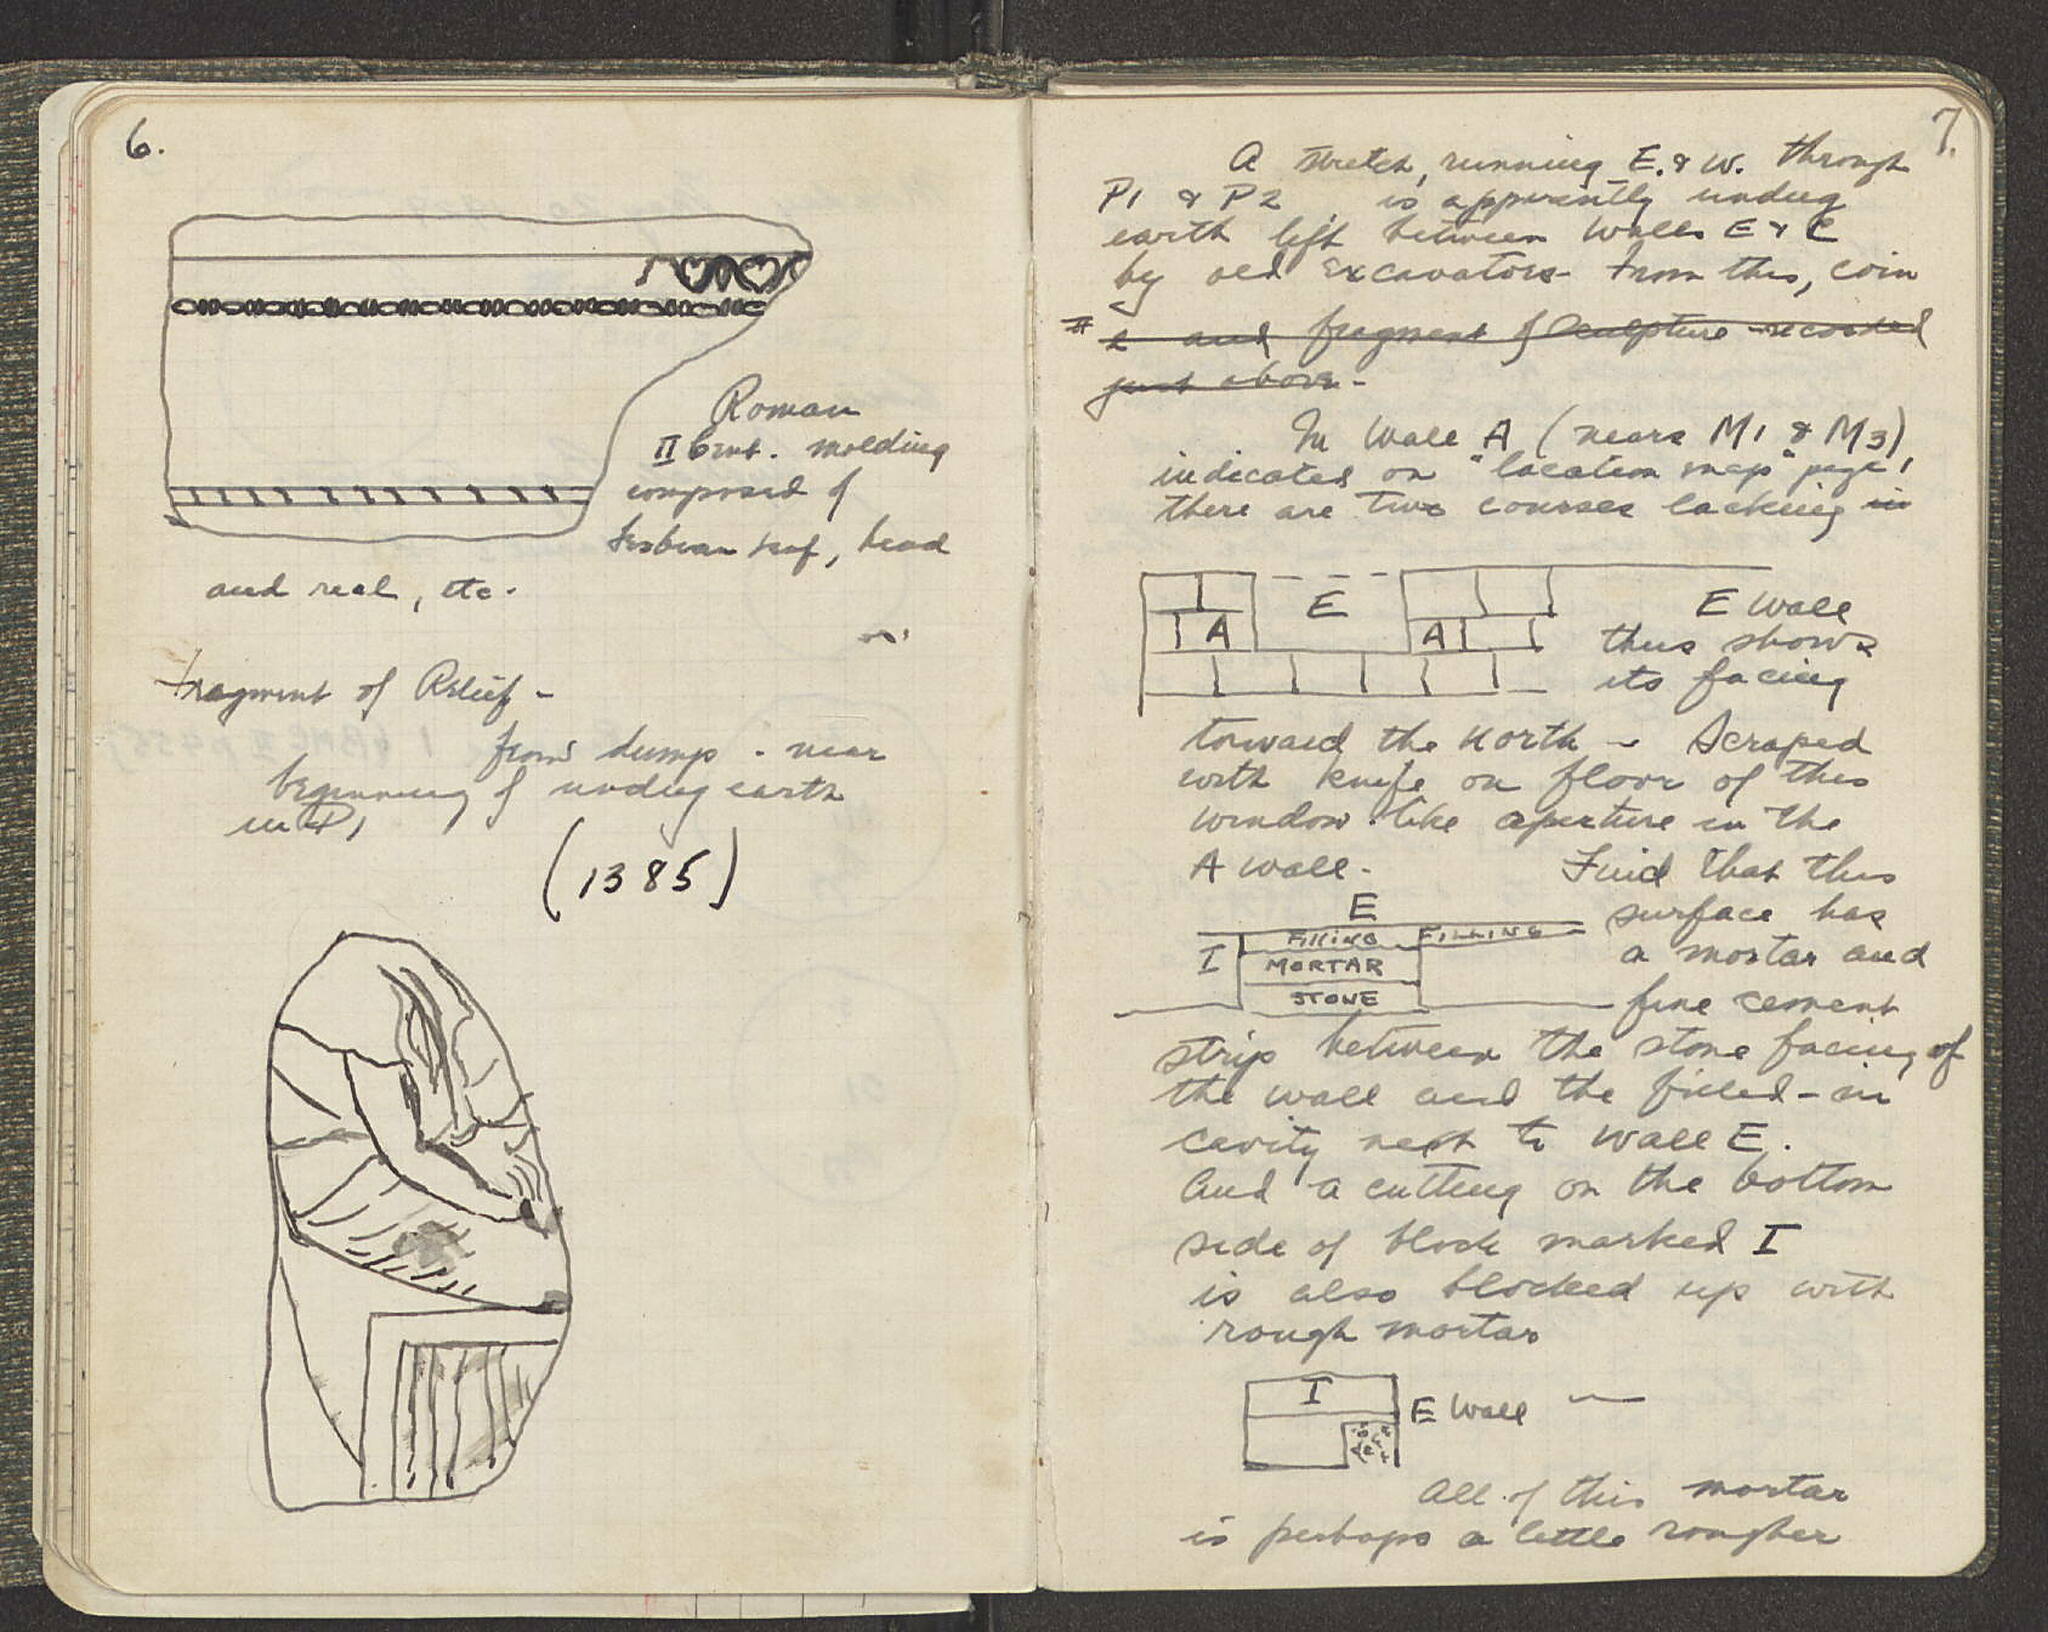 6.
Roman
II Cent. molding
composed of
Lesbian leaf, bead
and reel, etc.
Fragment of Relief -
from dump - near
beginning of undug earth
in P1
(1385)
7.
A stretch, running E. & W. through
P1 & P2 is apparently undug
earth left between Walls E & C
by old excavators - From this, coin
# 2 and fragment of sculpture recorded
just above -
In Wall A (nears M1 & M3),
indicated on "location map" page 1
there are two courses lacking in
E
A
A
E Wall
thus shows
its facing
toward the north - Scraped
with knife on floor of this
window-like aperture in the
A wall - Find that this
E
surface has
FILLING FILLING
I
MORTAR
a mortar and
STONE
fine cement
strip between the stone facing of
the wall and the filled-in
cavity next to Wall E.
And a cutting on the bottom
side of block marked I
is also blocked up with
rough mortar
I
E Wall
All of this mortar
is perhaps a little rougher